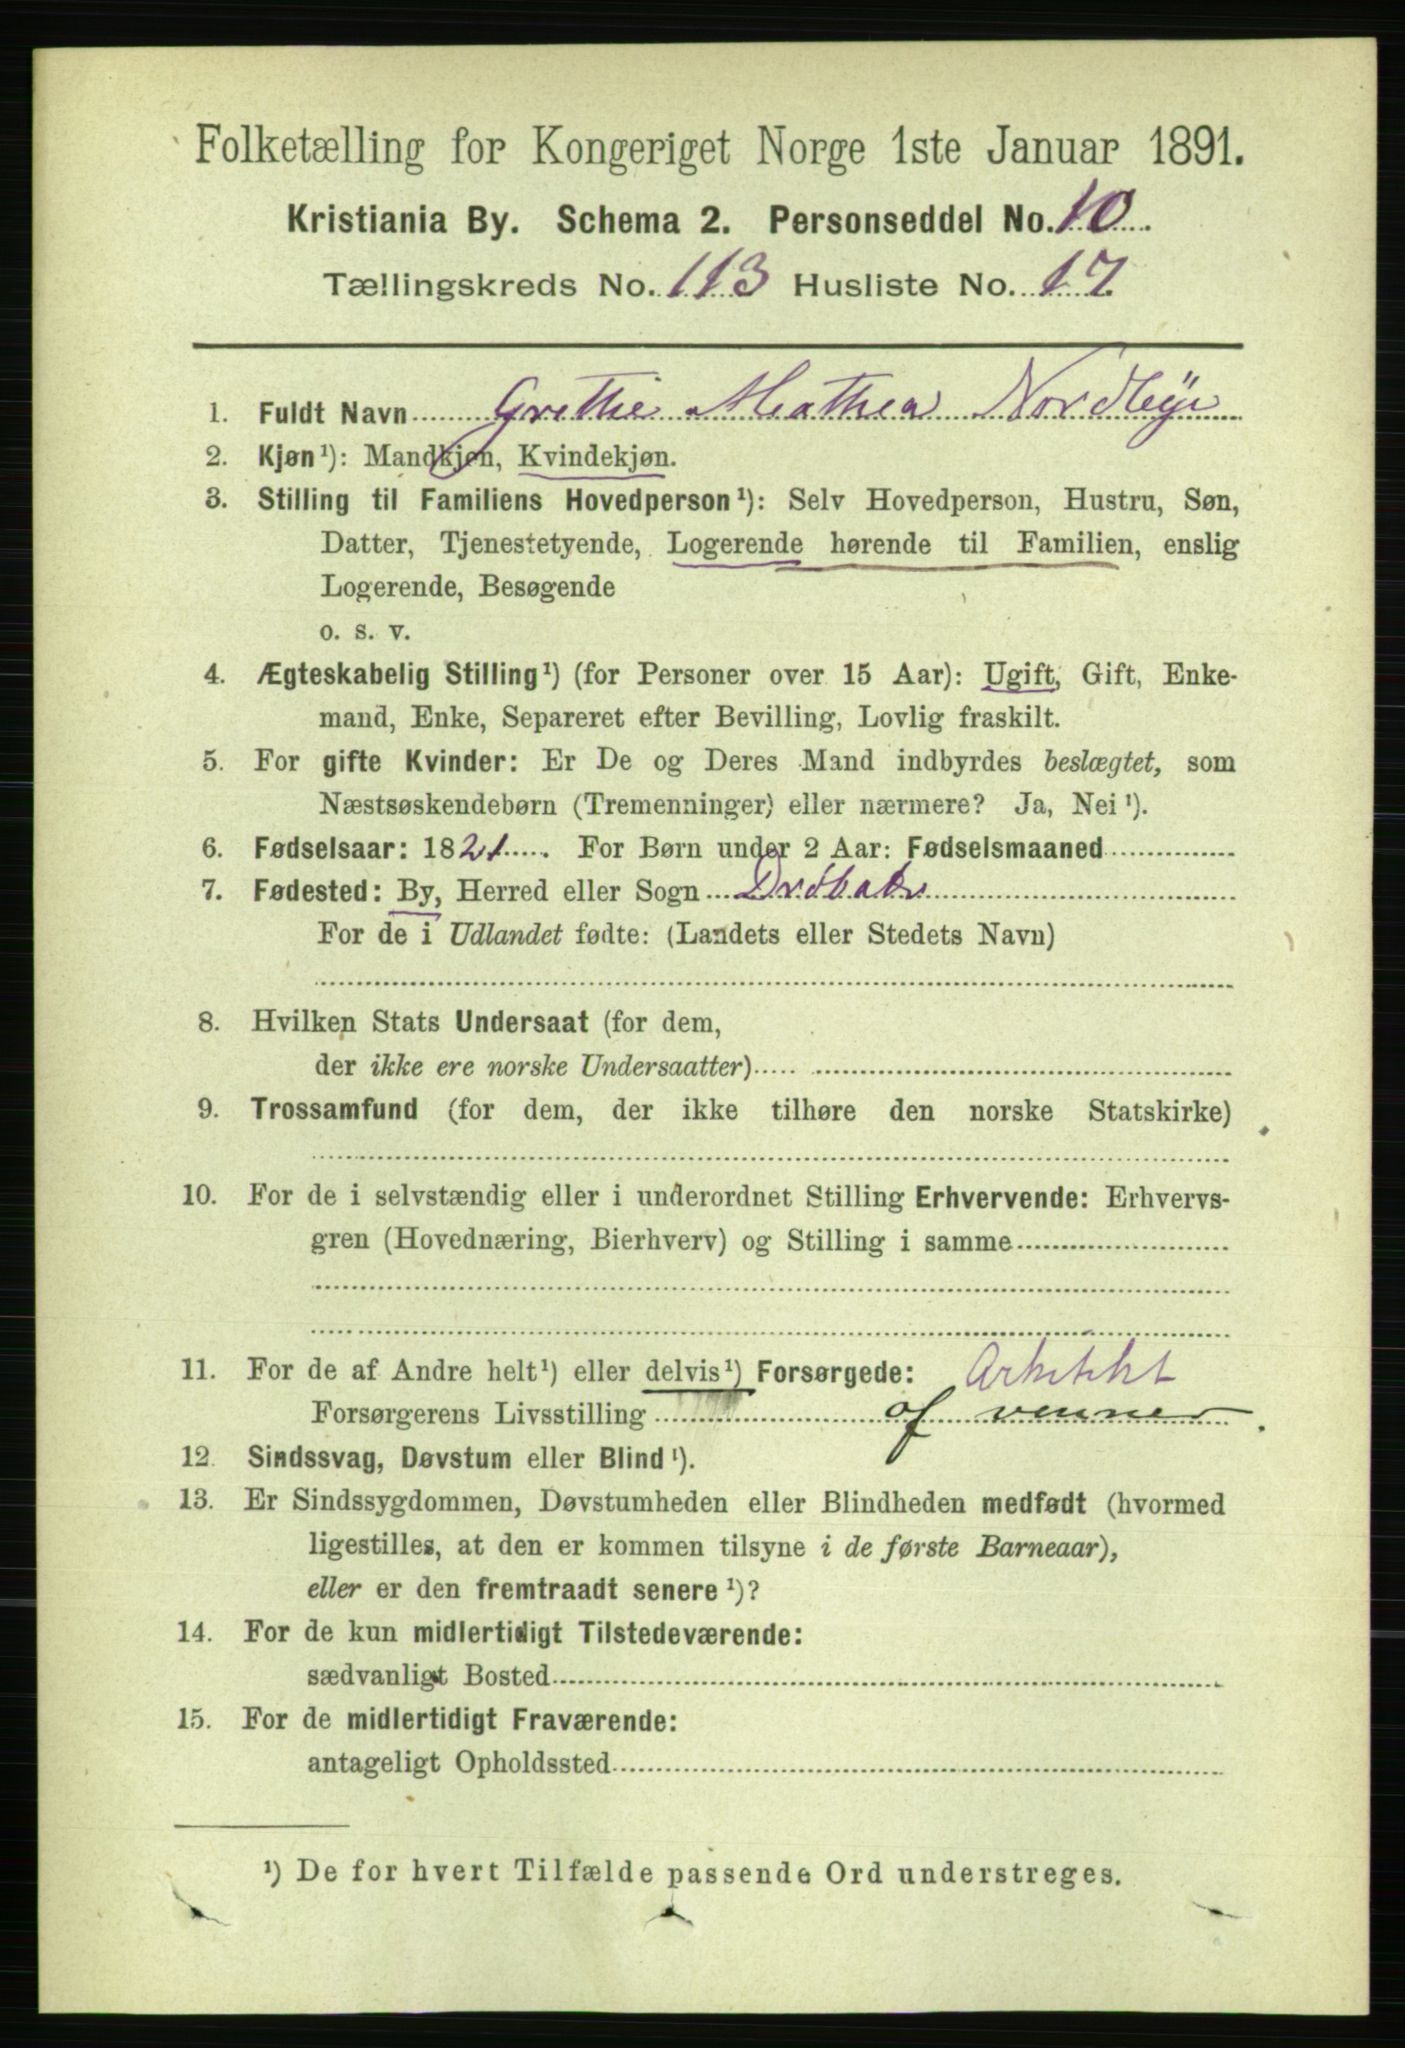 Folketælling for Kongeriget Norge 1ste Januar 1891.
Kristiania By. Schema 2. Personseddel No. 10
Tællingskreds No. 113 Husliste No. 17
1. Fuldt Navn Grethe Mathea Nordbye
2. Kjøn¹): Mandkjøn, Kvindekjøn.
3. Stilling til Familiens Hovedperson¹): Selv Hovedperson, Hustru, Søn,
Datter, Tjenestetyende, Logerende hørende til Familien, enslig
Logerende, Besøgende
o. s. v.
4. Ægteskabelig Stilling¹) (for Personer over 15 Aar): Ugift, Gift, Enke-
mand, Enke, Separeret efter Bevilling, Lovlig fraskilt.
5. For gifte Kvinder: Er De og Deres Mand indbyrdes beslægtet, som
Næstsøskendebørn (Tremenninger) eller nærmere? Ja, Nei¹).
6. Fødselsaar: 1821. For Børn under 2 Aar: Fødselsmaaned
7. Fødested: By, Herred eller Sogn Drøbak
For de i Udlandet fødte: (Landets eller Stedets Navn)
8. Hvilken Stats Undersaat (for dem,
der ikke ere norske Undersaatter)
9. Trossamfund (for dem, der ikke tilhøre den norske Statskirke)
10. For de i selvstændig eller i underordnet Stilling Erhvervende: Erhvervs-
gren (Hovednæring, Bierhverv) og Stilling i samme
11. For de af Andre helt¹) eller delvis¹) Forsørgede:
Forsørgerens Livsstilling af venner.
12. Sindssvag, Døvstum eller Blind¹).
13. Er Sindssygdommen, Døvstumheden eller Blindheden medfødt (hvormed
ligestilles, at den er kommen tilsyne i de første Barneaar),
eller er den fremtraadt senere¹)?
14. For de kun midlertidigt Tilstedeværende:
sædvanligt Bosted
15. For de midlertidigt Fraværende:
antageligt Opholdssted
¹) De for hvert Tilfælde passende Ord understreges.